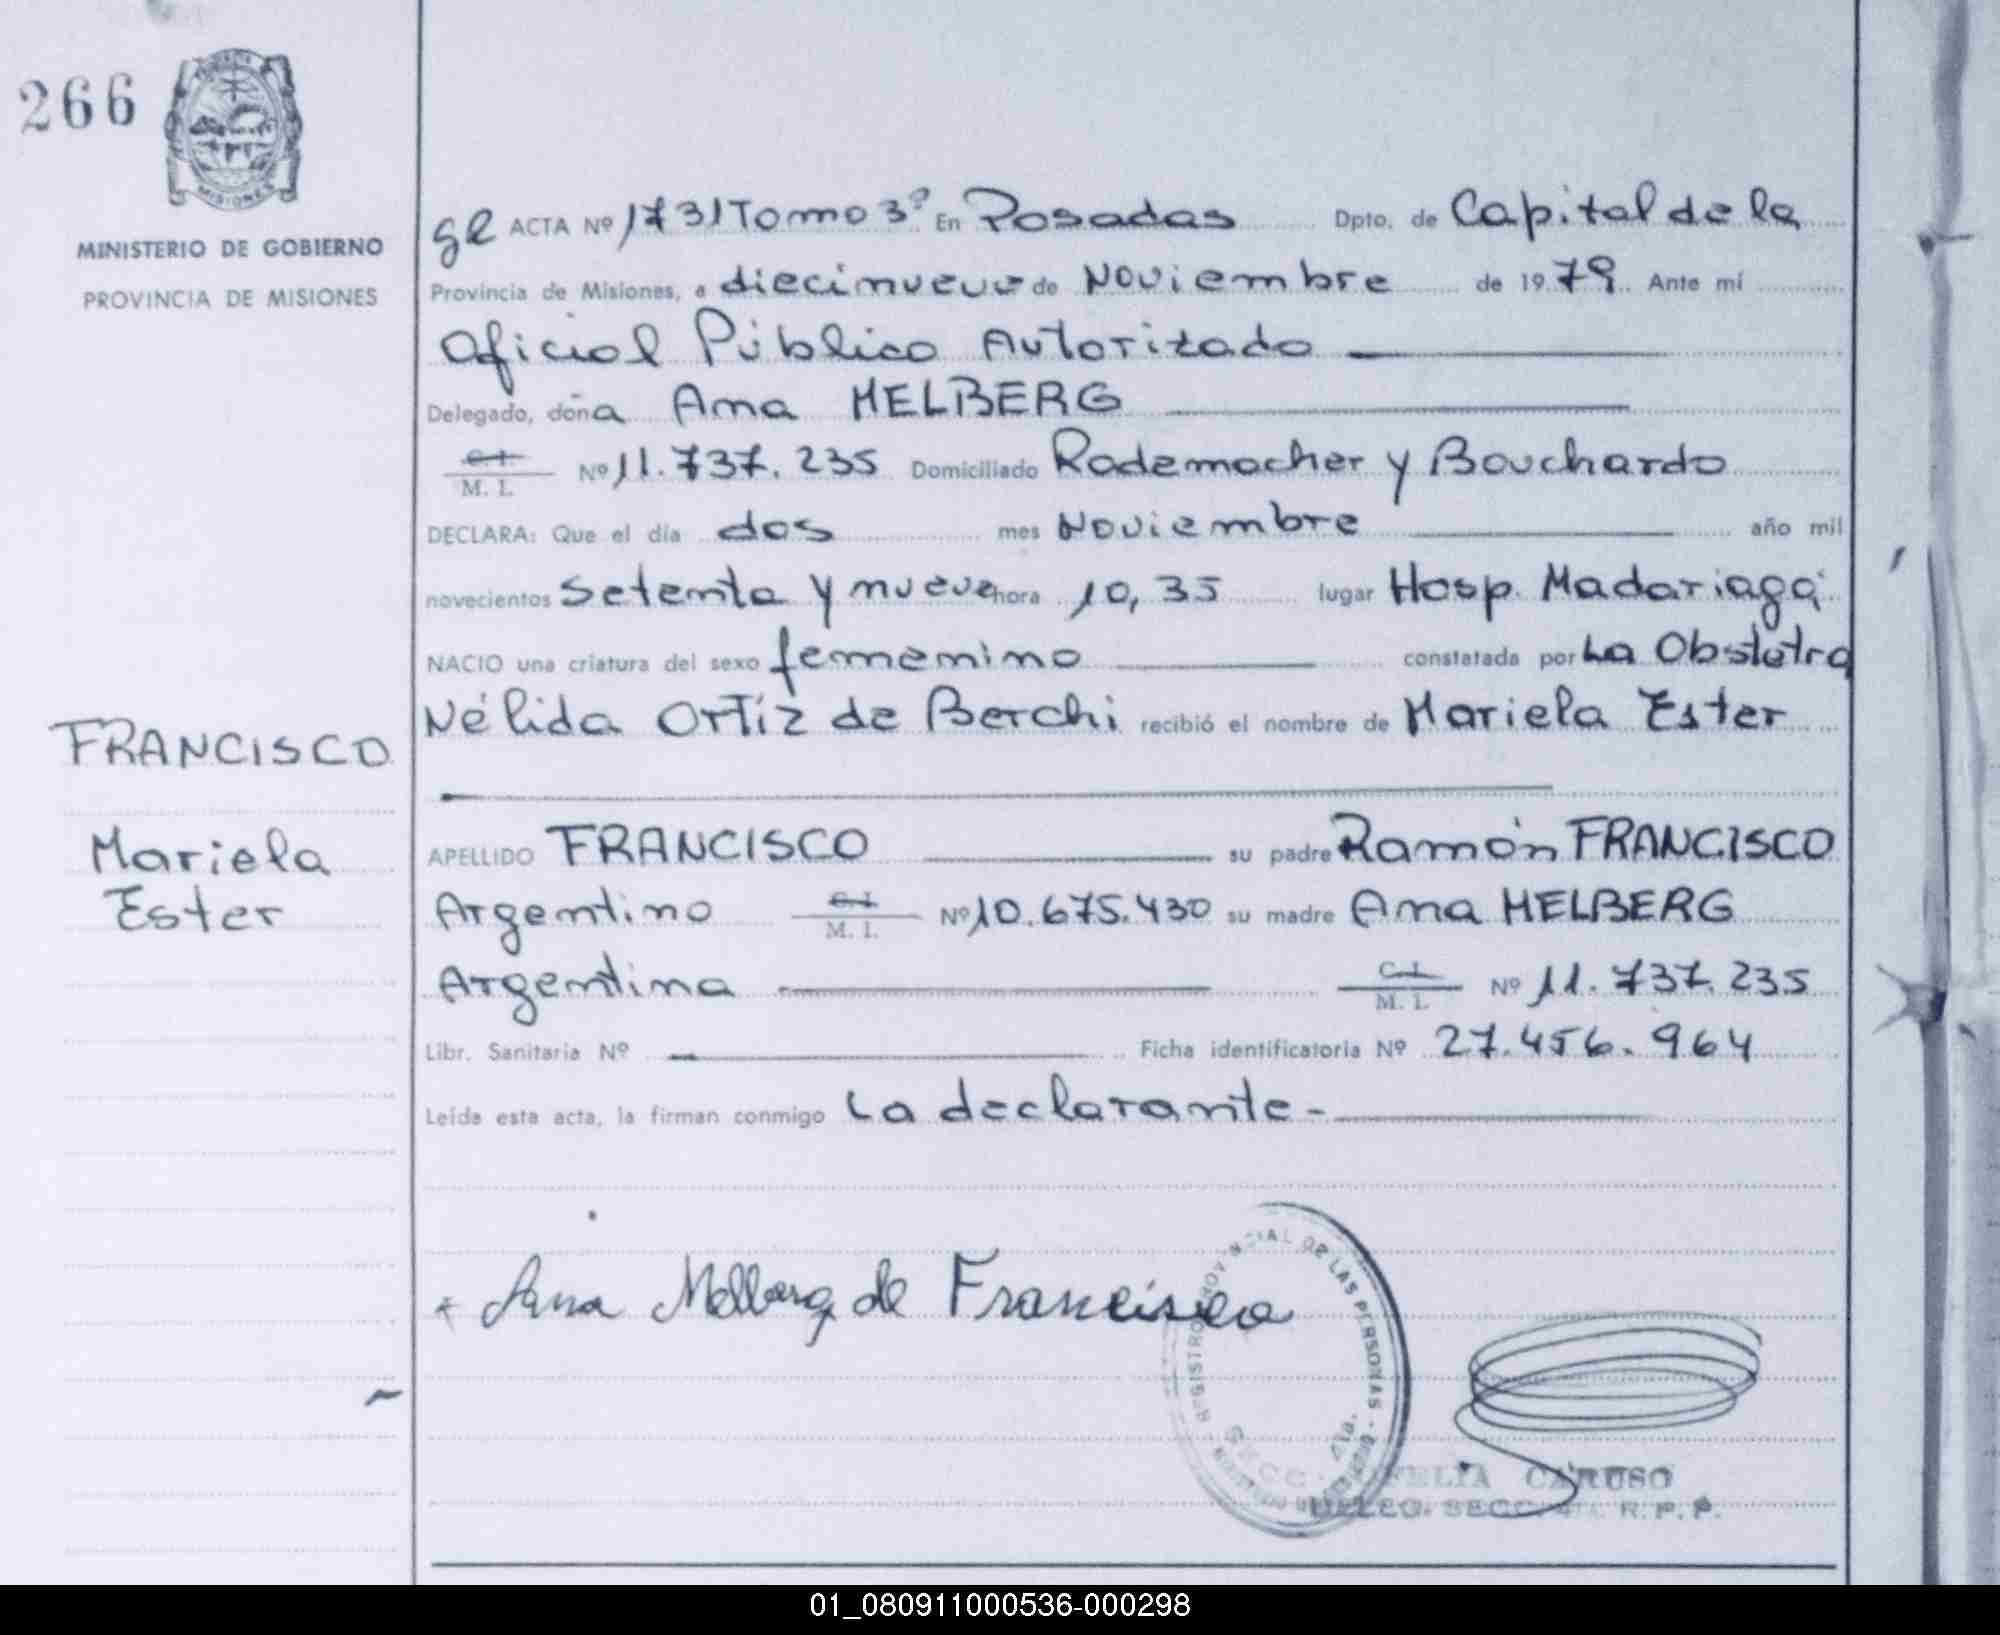 266
MISIONES
MINISTERIO DE GOBIERNO
PROVINCIA DE MISIONES
FRANCISCO
Mariela
Ester
ACTA Nº 1731 Tomo 3º En Posadas Dpto. de Capital de la
Provincia de Misiones, a diecinueve de Noviembre de 1979. Ante mí
Oficial Público Autorizado
Delegado, doña Ana MELBERG
C. I. M. I. Nº 11.737.235 Domiciliado Rademacher y Bouchardo
DECLARA: Que el día dos mes Noviembre año mil
novecientos setenta y nueve hora 10,35 lugar Hosp. Madariaga
NACIO una criatura del sexo femenino constatada por La Obstetra
Nélida Ortíz de Berchi recibió el nombre de Mariela Ester
APELLIDO FRANCISCO su padre Ramón FRANCISCO
Argentino C. I. M. I. Nº 10.675.430 su madre Ana MELBERG
Argentina C. I. M. I. Nº 11.737.235
Libr. Sanitaria Nº Ficha identificatoria Nº 27.456.964
Leída esta acta, la firman conmigo La declarante-
Ana Melberg de Francisco
REGISTRO PROVINCIAL DE LAS PERSONAS
SECC. 4ta.
OFELIA CARUSO
DELEG. SECC. 4ta. R. P. P.
01_080911000536-000298